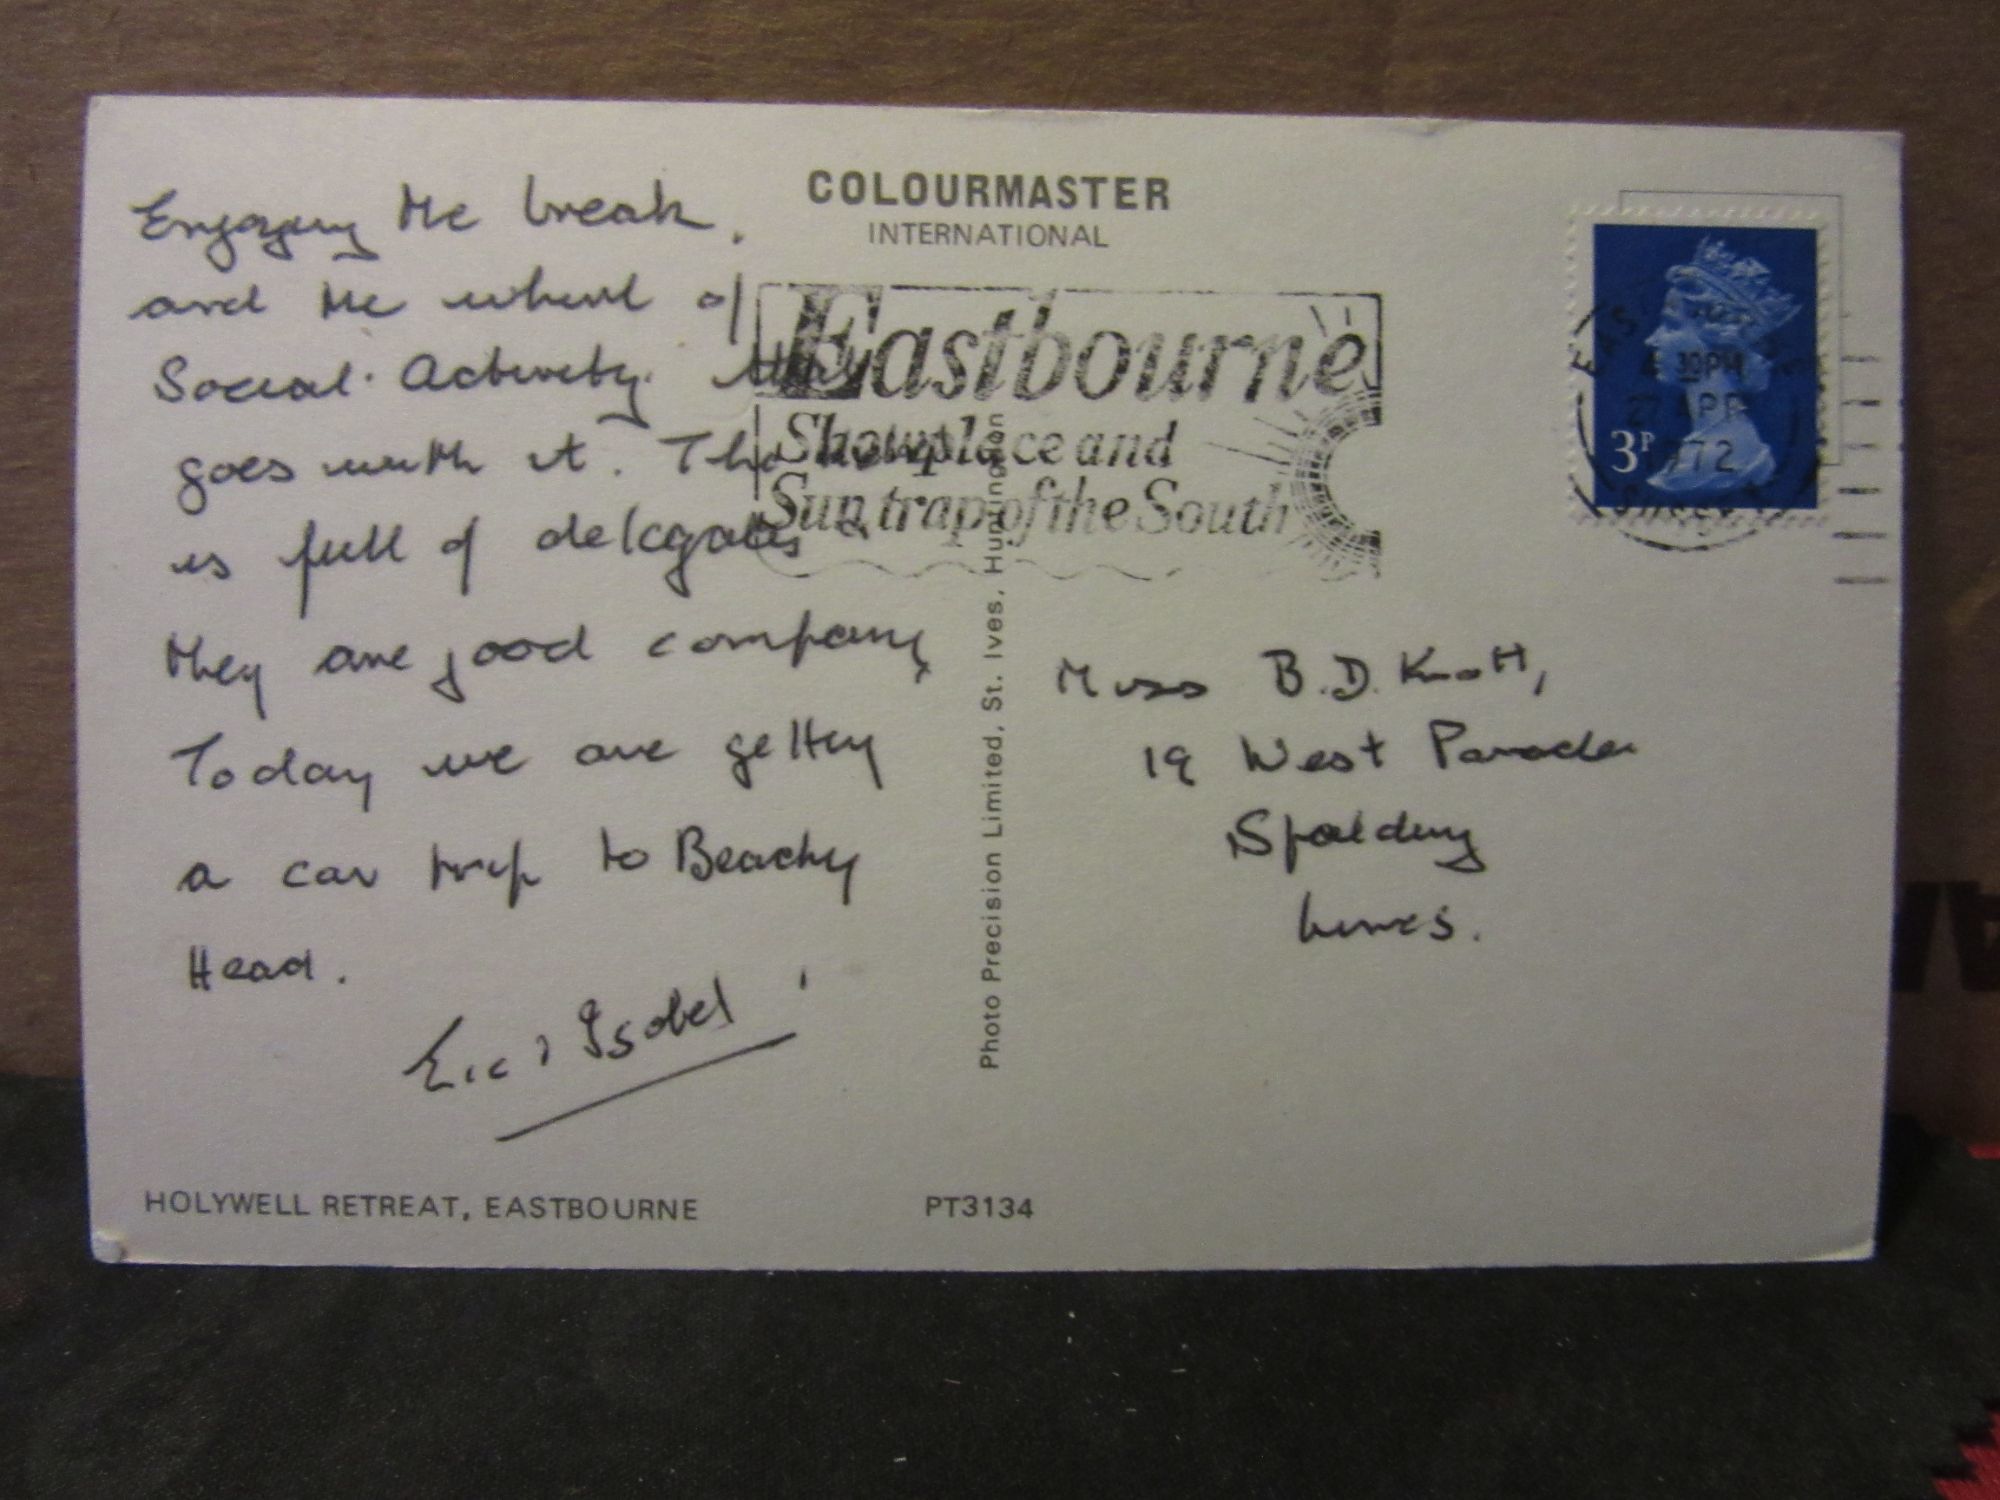 COLOURMASTER
INTERNATIONAL
Enjoying the break,
and the whirl of
Social Activity that
goes with it. The hotel
is full of delegates &
they are good company
Today we are getting
a car trip to Beachy
Head.
Eric & Isobel
Eastbourne
Showplace and
Sun trap of the South
EASTBOURNE
4 30PM
27 APR
1972
SUSSEX
3P
Miss B.D. Knott,
19 West Parade
Spalding
Lincs.
Photo Precision Limited, St. Ives, Huntingdon
HOLYWELL RETREAT, EASTBOURNE PT3134